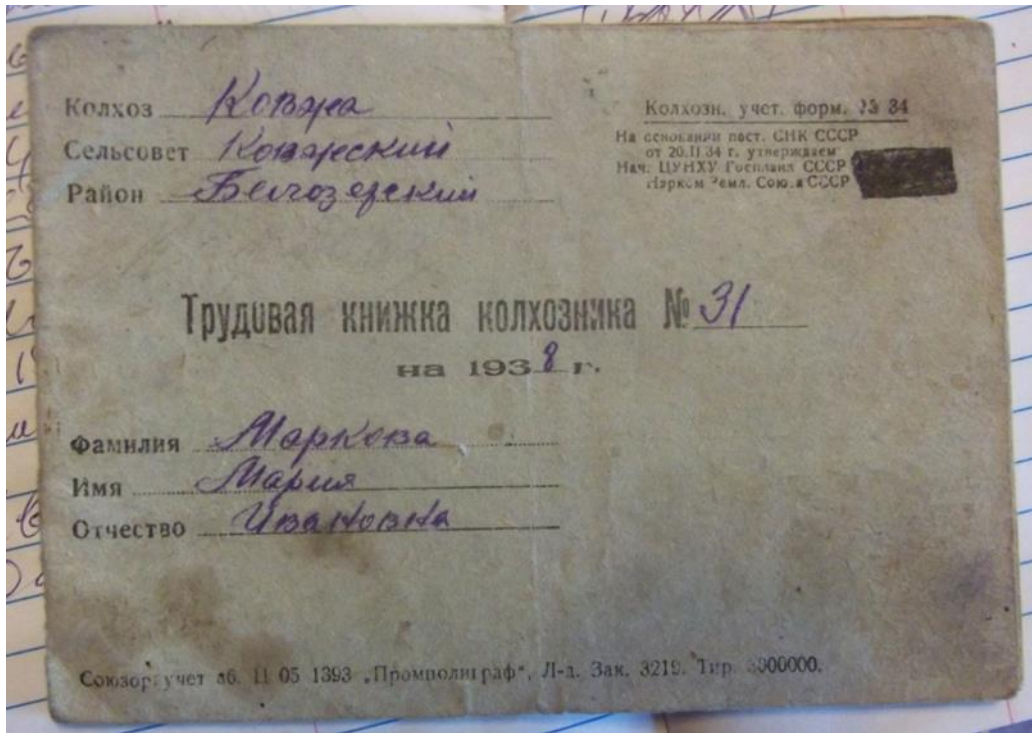 Колхоз Ковжа
Сельсовет Ковжский
Район Белозерский
Колхозн. учет. форм. № 34
На основании пост. СНК СССР
от 20.II.34 г. утверждаем
Нач. ЦУНХУ Госплана СССР
Нарком Земл. Союза СССР
Трудовая книжка колхозника № 31
на 1938 г.
Фамилия Маркова
Имя Мария
Отчество Ивановна
Союзоргучет 11 05 1393 „Промполиграф“, Л-д. Зак. 3219. Тир.